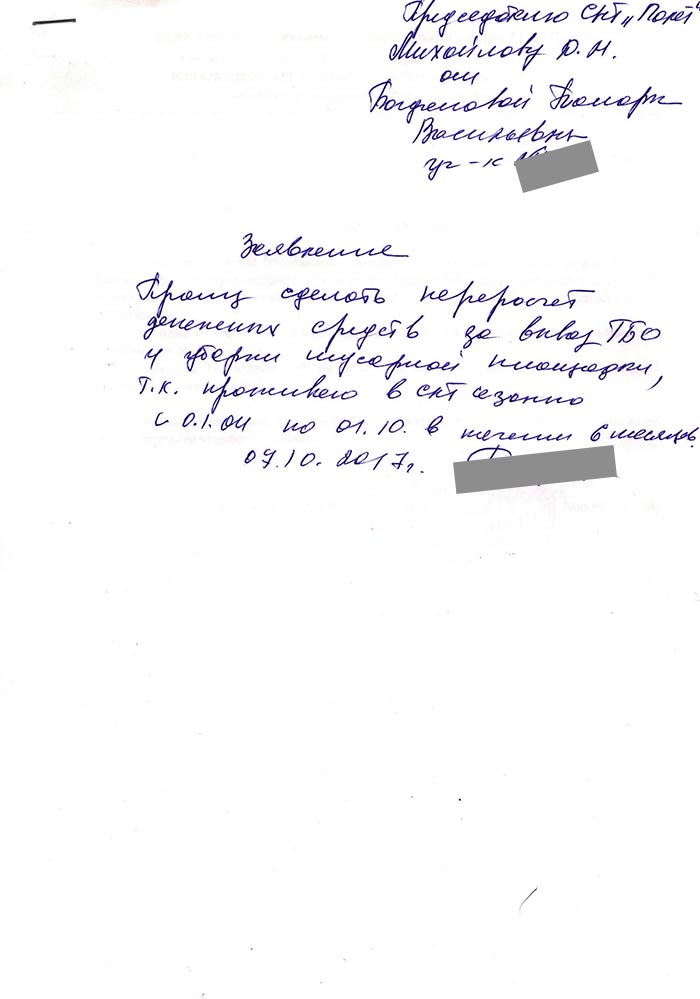 Председателю СНТ „Полёт"
Михайлову Д. Н.
от
Тамары
Васильевны
уч-к №
Заявление
Прошу сделать перерасчет
денежных средств за вывоз ТБО
и уборки мусорной площадки,
т.к. проживаю в СНТ сезонно
с 01.04 по 01.10. в течении 6 месяцев.
07.10.2017г.